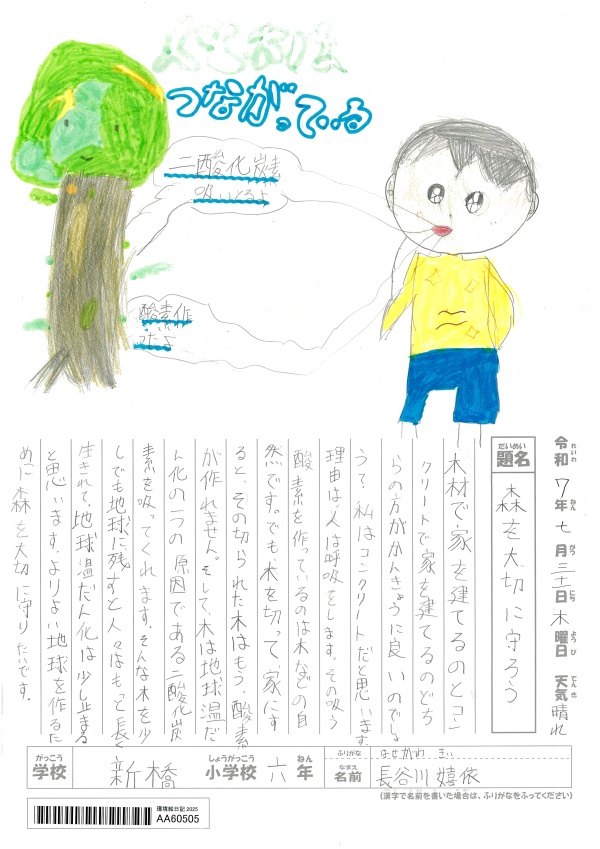 ぐるおけは
つながっている
二酸化炭素
吸いとるよ
酸素作
ったよ
令和 れいわ 7年 ねん 七月 がつ 三十一日 にち 木曜日 ようび 天気 てんき 晴れ
だいめい
題名 森を大切に守ろう
木材で家を建てるのとコン
クリートで家を建てるのどち
らの方がかんきょうに良いのでしょ
うて、私はコンクリートだと思います。
理由は、人は呼吸をします。その吸う
酸素を作っているのは木などの自
然です。でも木を切って家にす
ると、その切られた木はもう、酸素
が作れません。そして、木は地球温だ
ん化の一つの原因である二酸化炭
素を吸ってくれます。そんな木を少
しでも地球に残すと人々はもっと長く
生きれて、地球温だん化は少し止まる
と思います。よりよい地球を作るた
めに森を大切に守りたいです。
がっこう しょうがっこう ねん
学校 新橋 小学校 六年
ふりがな はせがわ きい
なまえ
名前 長谷川嬉依
(漢字で名前を書いた場合は、ふりがなをふってください)
環境絵日記 2025
AA60505